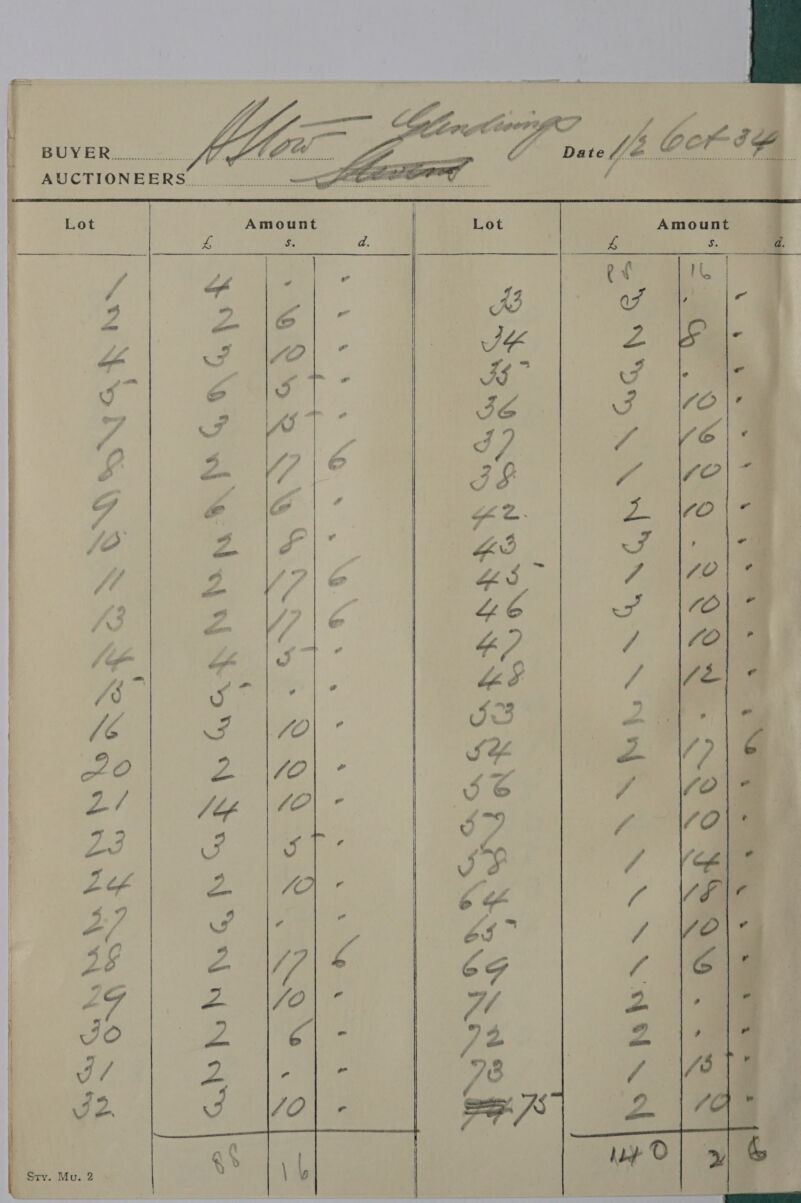 BUYER Glendinings Date 1/2 Oct 34
AUCTIONEERS
Lot Amount Lot Amount
£ s. d. £ s. d.
88 16
1 4 . - 33 3 . -
2 2 6 - 34 2 8 -
4 3 10 - 35 3 . -
5 6 5 - 36 3 10 -
7 3 15 - 37 1 16 -
8 2 17 6 38 1 10 -
9 6 6 - 42 2 10 -
10 2 8 - 43 3 . -
11 2 17 6 45 1 10 -
13 2 17 6 46 3 10 -
14 4 5 - 47 1 10 -
15 5 . - 48 1 12 -
16 3 10 - 53 2 . -
20 2 10 - 54 2 17 6
21 14 10 - 56 1 10 -
23 3 5 - 57 1 10 -
24 2 10 - 58 1 14 -
27 3 - - 64 1 18 -
28 2 17 6 65 1 10 -
29 2 10 - 69 1 6 -
30 2 6 - 71 2 . -
31 2 - - 72 2 . -
32 3 10 - 73 1 15 -
75 2 10 -
88 16 140 2 6
STY. MU. 2